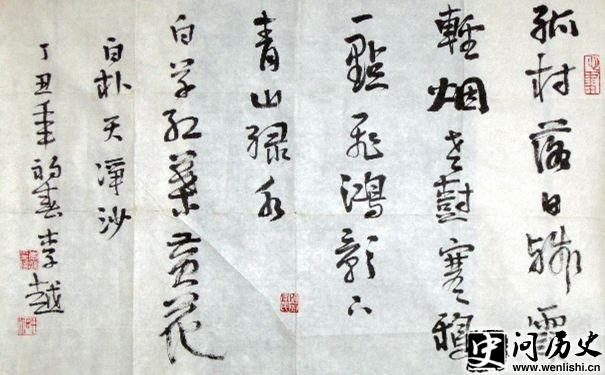 孤村落日殘霞
輕烟老樹寒鴉
一點飛鴻影下
青山绿水
白草红葉黄花
白朴天淨沙
丁丑年初春李越
问历史
www.wenlishi.cn